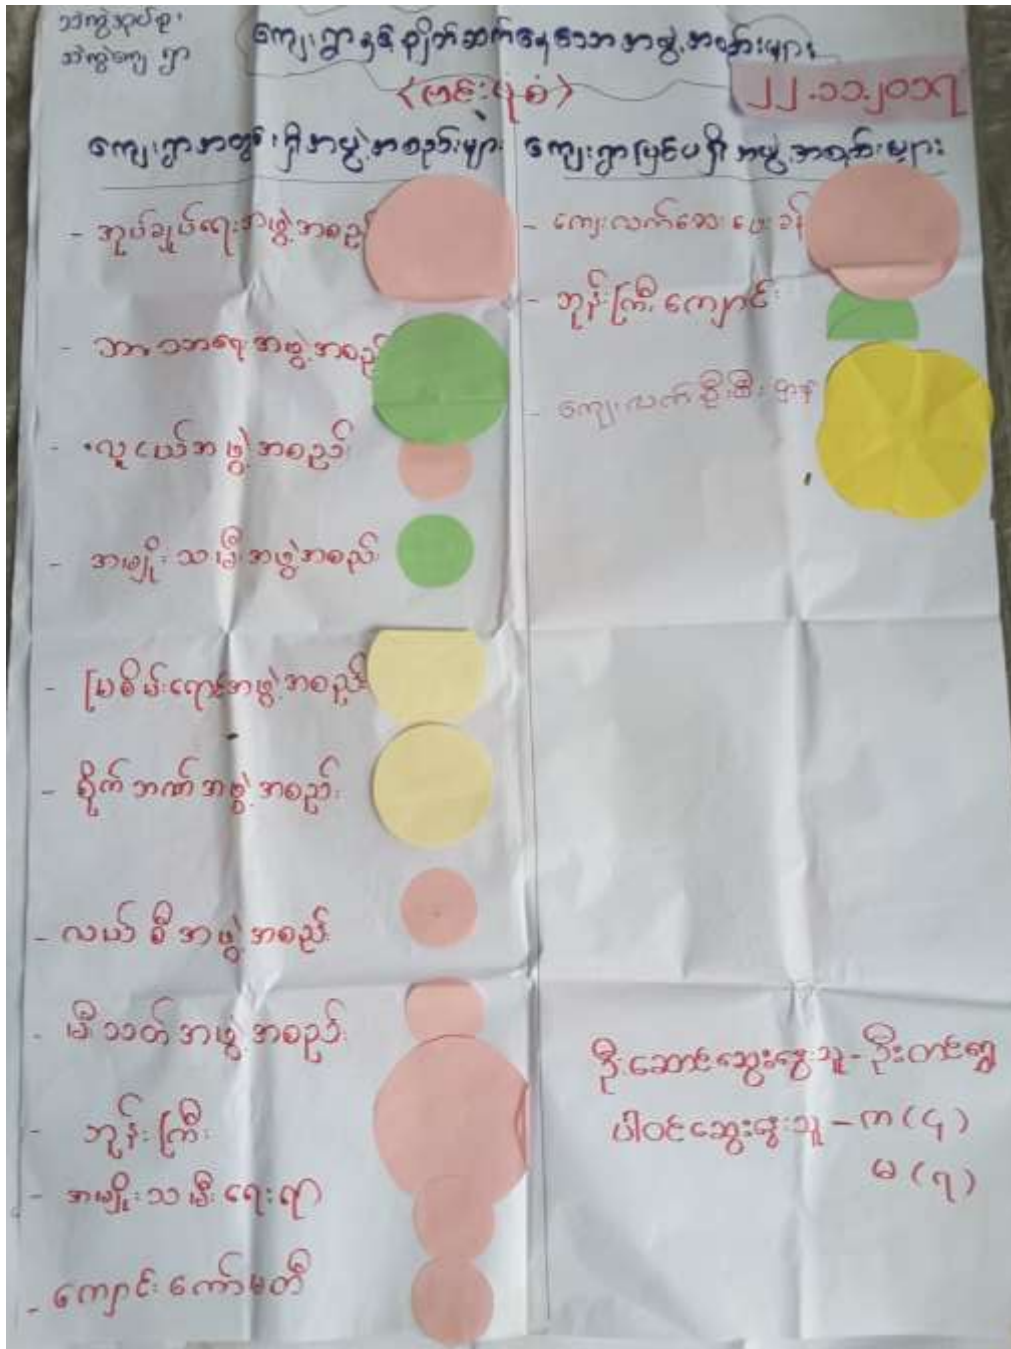 သဲကွဲအုပ်စု၊
သဲကွဲကျေးရွာ
ကျေးရွာနှင့်ချိတ်ဆက်နေသောအဖွဲ့အစည်းများ
<ဗင်းပုံစံ>
၂၂.၁၁.၂၀၁၇
ကျေးရွာအတွင်းရှိအဖွဲ့အစည်းများ
- အုပ်ချုပ်ရေးအဖွဲ့အစည်း
- ဘာသာရေးအဖွဲ့အစည်း
- လူငယ်အဖွဲ့အစည်း
- အမျိုးသမီးအဖွဲ့အစည်း
- မြစိမ်းရောင်အဖွဲ့အစည်း
- စိုက်ဘဏ်အဖွဲ့အစည်း
- လယ်စီအဖွဲ့အစည်း
- မီးသတ်အဖွဲ့အစည်း
- ဘုန်းကြီး
- အမျိုးသမီးရေးရာ
- ကျောင်းကော်မတီ
ကျေးရွာပြင်ပရှိအဖွဲ့အစည်းများ
- ကျေးလက်ဆေးပေးခန်း
- ဘုန်းကြီးကျောင်း
- ကျေးလက်ဦးစီးဌာန
ဦးဆောင်ဆွေးနွေးသူ - ဦးတင်ရွှေ
ပါဝင်ဆွေးနွေးသူ - ကျား (၄)
မ (၇)